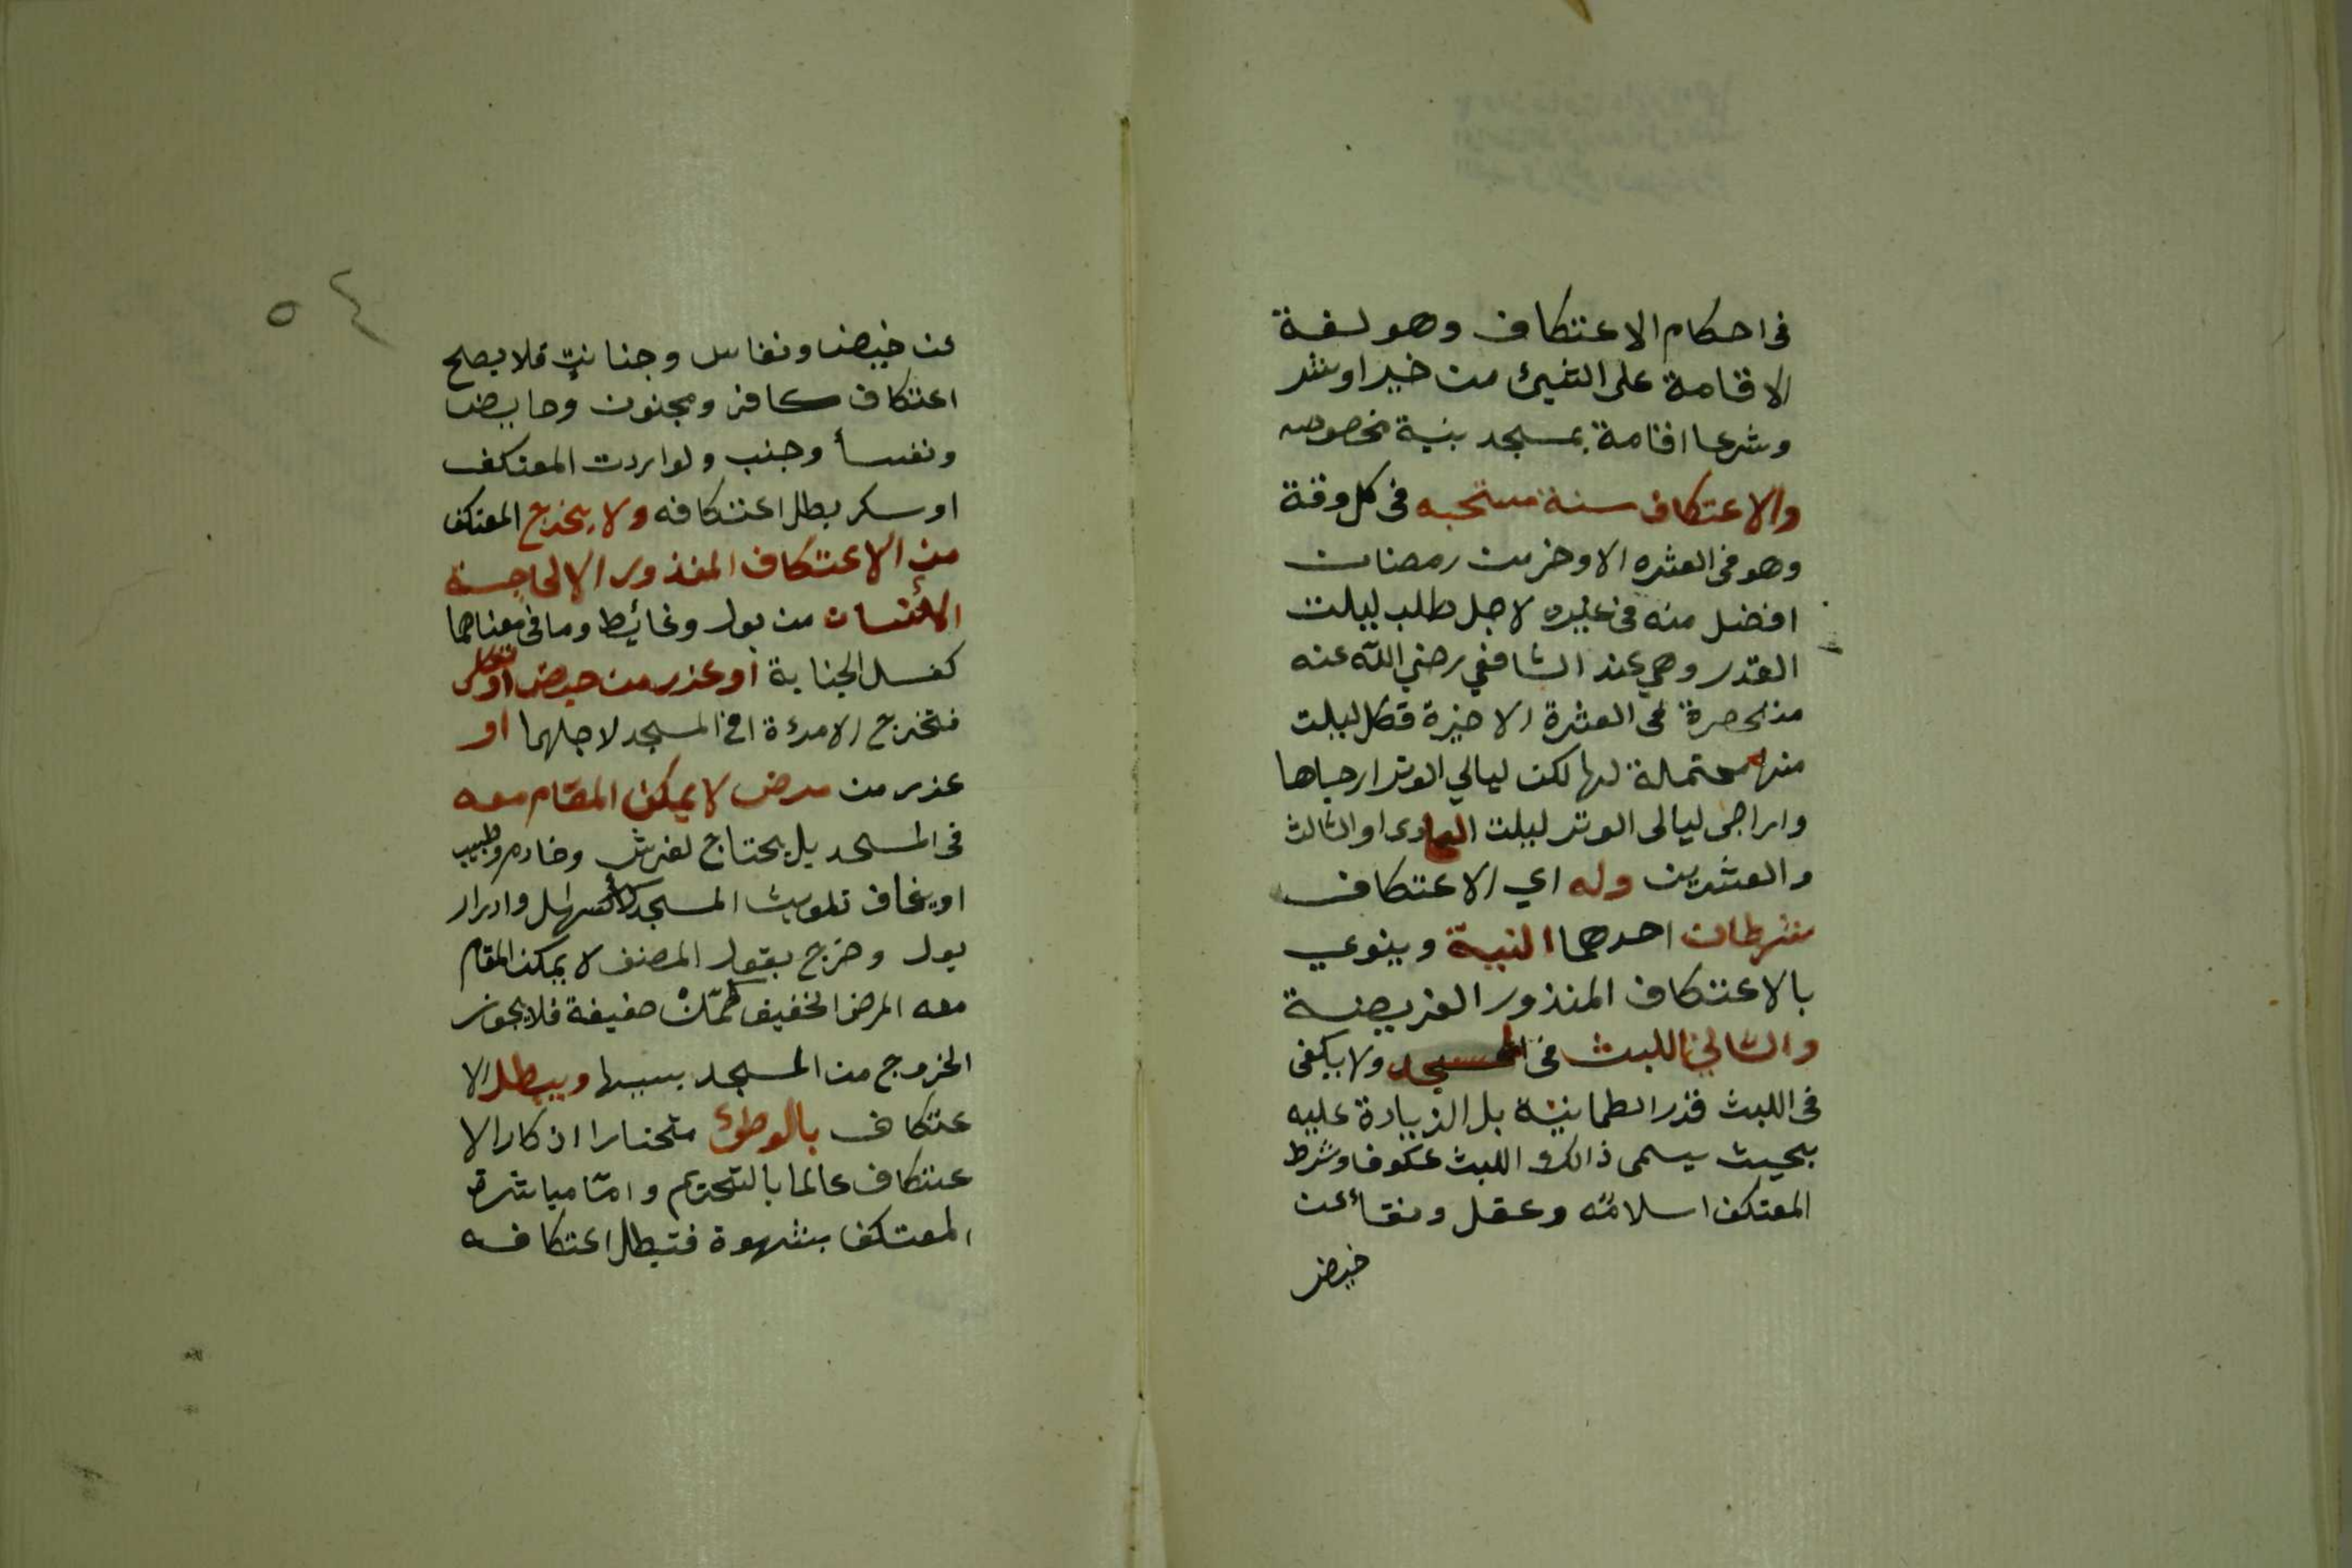 في احكام الاعتكاف وهو لغة
الاقامة على الشيئ من خير او شر
وشرعا اقامة بمسجد بنية مخصوصه
والاعتكاف سنة مستحبه في كل وقة
وهو في العشره الاوخر من رمضان
افضل منه في غيره لاجل طلب ليلت
القدر وهي عند الشافعي رضي الله عنه
منحصرة في العشرة الاخيرة فكل ليلت
منها محتملة لها لكن ليالي الوتر ارجاها
وارجى ليالى الوتر ليلت الحادى او الثالث
والعشرين وله اي الاعتكاف
شرطان احدهما النية وينوي
بالاعتكاف المنذور الفريضة
والثاني اللبث في المسجد ولا يكفى
في اللبث قدر الطمانينة بل الزيادة عليه
بحيث يسمى ذالك اللبث عكوفا وشرط
المعتكف اسلامه وعقل ونقأ عن
خيض
٥٤
عن خيض ونفاس وجنابت فلا يصح
اعتكاف كافر ومجنون وحايض
ونفسأ وجنب ولو اردت المعتكف
او سكر بطل اعتكافه ولا يخرج المعتكف
من الاعتكاف المنذور الا لحاجسة
الانسان من بول وغائيط وما في معناهما
كغسل الجنابة او عذر من حيض او نفاس
فتخرج الامرءة من المسجد لاجلهما او
عذر من مرض لا يمكن المقام معه
في المسجد بل يحتاج لفرش وخادم وطبيب
او يخاف تلويث المسجد كأسهال وادرار
بول وخرج بقول المصنف لا يمكن المقام
معه المرض الخفيف كحمّى خفيفة فلا يجوز
الخروج من المسجد بسببها ويبطل الا
عتكاف بالوطئ مختارا اذكار الا
عتكاف عالما بالتحريم وامّا مباشرة
المعتكف بشهوة فتبطل اعتكافه